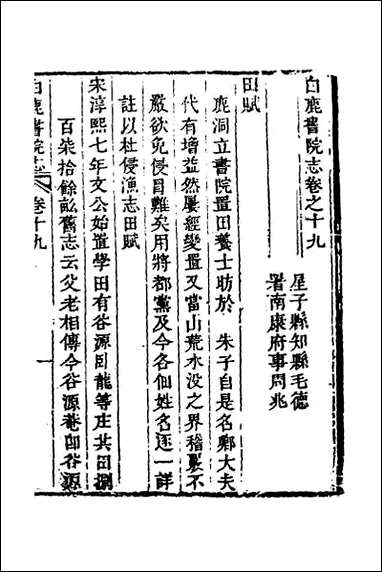 白鹿書院志卷之十九
星子縣知縣毛德
署南康府事同兆
田賦
鹿洞立書院置田養士昉於 朱子自是名卿大夫
代有增益然屢經變置又當山荒水没之界稽覈不
嚴欲免侵冒難矣用將都黨及今各佃姓名逐一詳
註以杜侵漁志田賦
宋淳熙七年文公始置學田有谷源臥龍等庄共田捌
百柒拾餘畝舊志云父老相傳今谷源菴卽谷源
白鹿書院志 卷十九 一